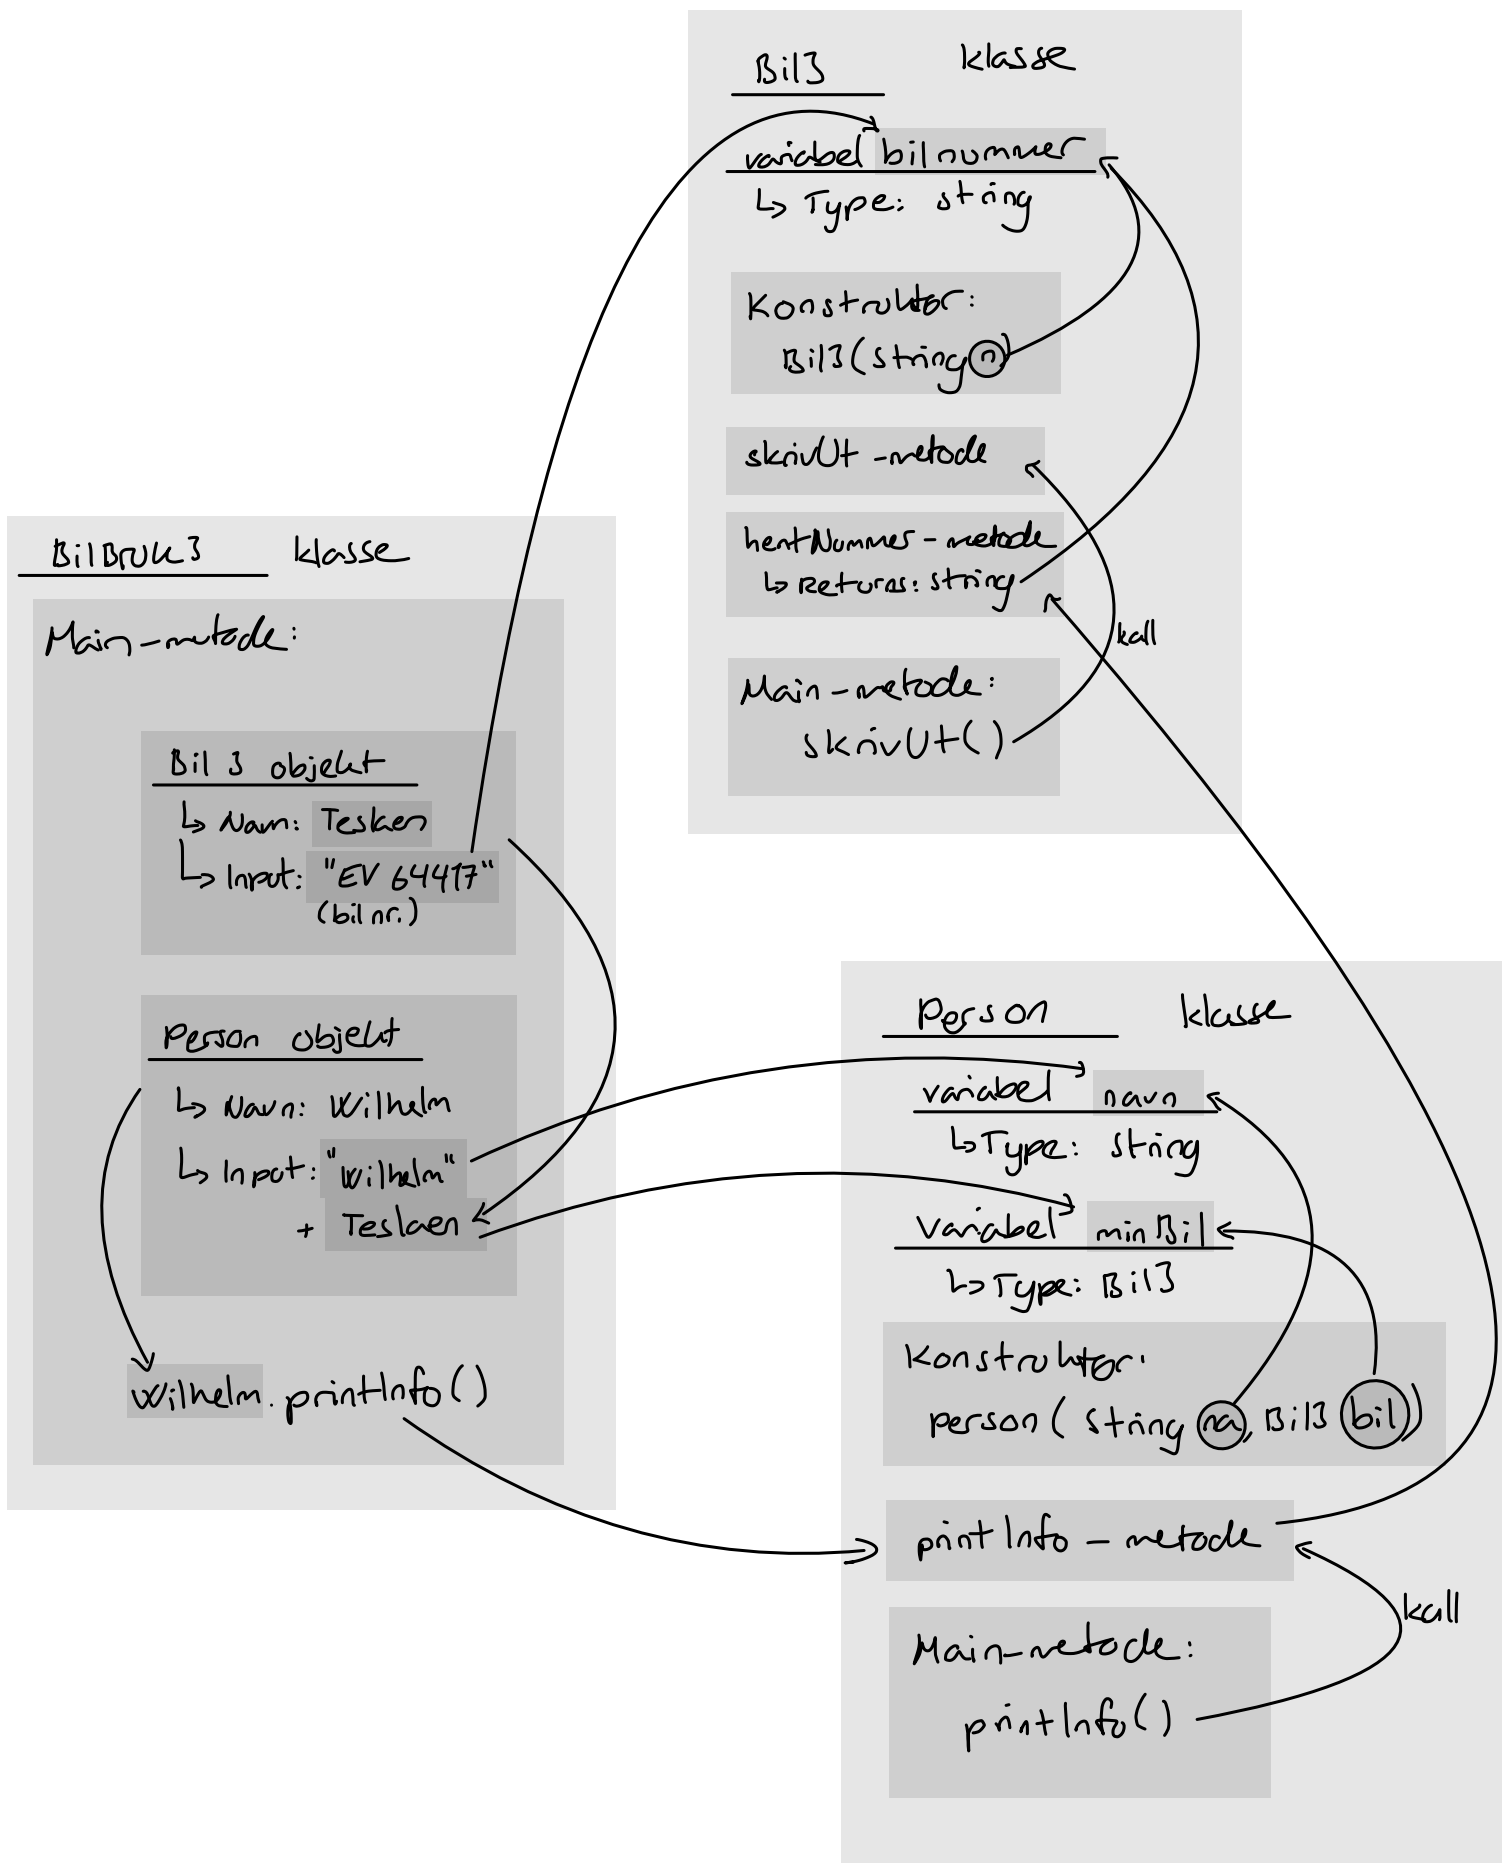 Bil3 klasse
variabel bilnummer
↳ Type: string
Konstruktor:
Bil3(String n)
skrivUt -metode
hentNummer - metode
↳ Returns: string
kall
Main-metode:
skrivUt()
BilBruk3 klasse
Main-metode:
Bil3 objekt
↳ Navn: Teslaen
↳ Input: "EV 64417"
(bilnr.)
Person objekt
↳ Navn: Wilhelm
↳ Input: "Wilhelm"
+ Teslaen
Wilhelm.printInfo()
Person klasse
variabel navn
↳ Type: String
Variabel minBil
↳ Type: Bil3
Konstruktor:
person( String na, Bil3 bil)
printInfo - metode
kall
Main-metode:
printInfo()